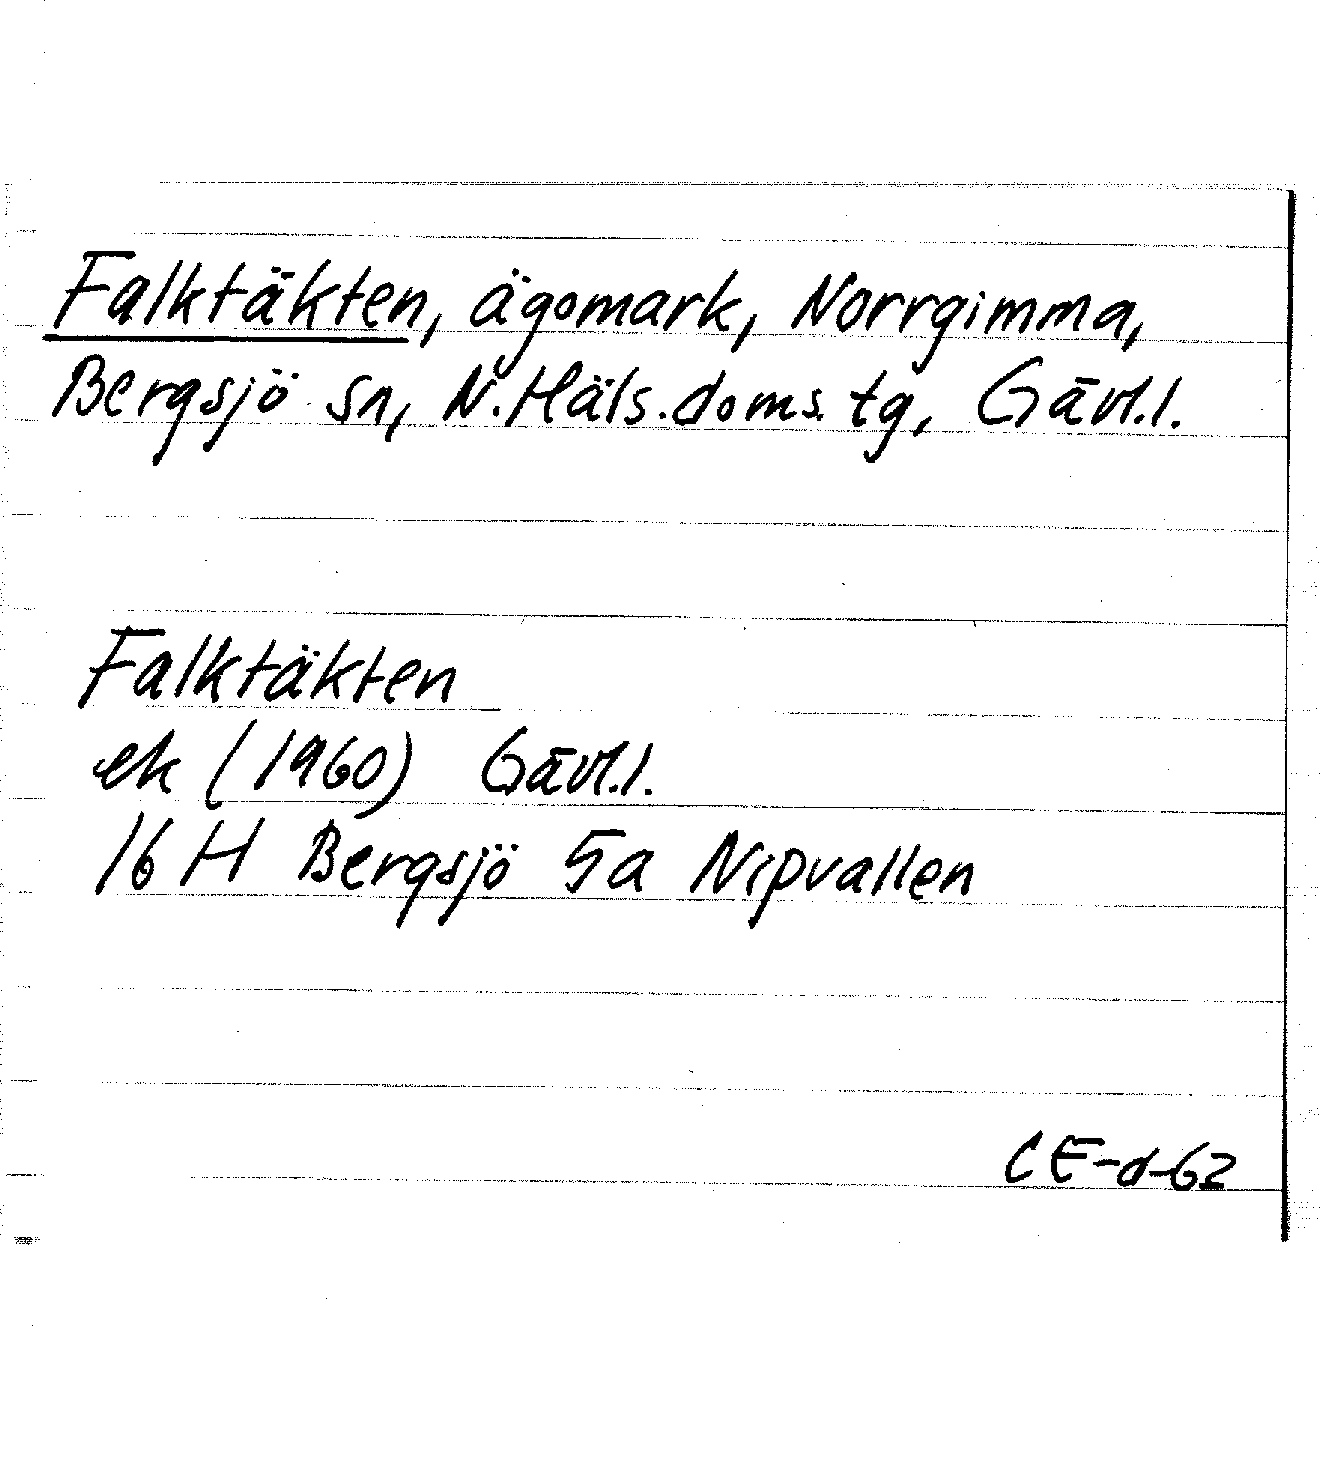 Falktäkten, ägomark, Norrgimma,
Bergsjö sn, N. Häls. doms. tg, Gävl.l.
Falktäkten
ek (1960) Gävl.l.
16 H Bergsjö 5a Nipvallen
CE-d-62